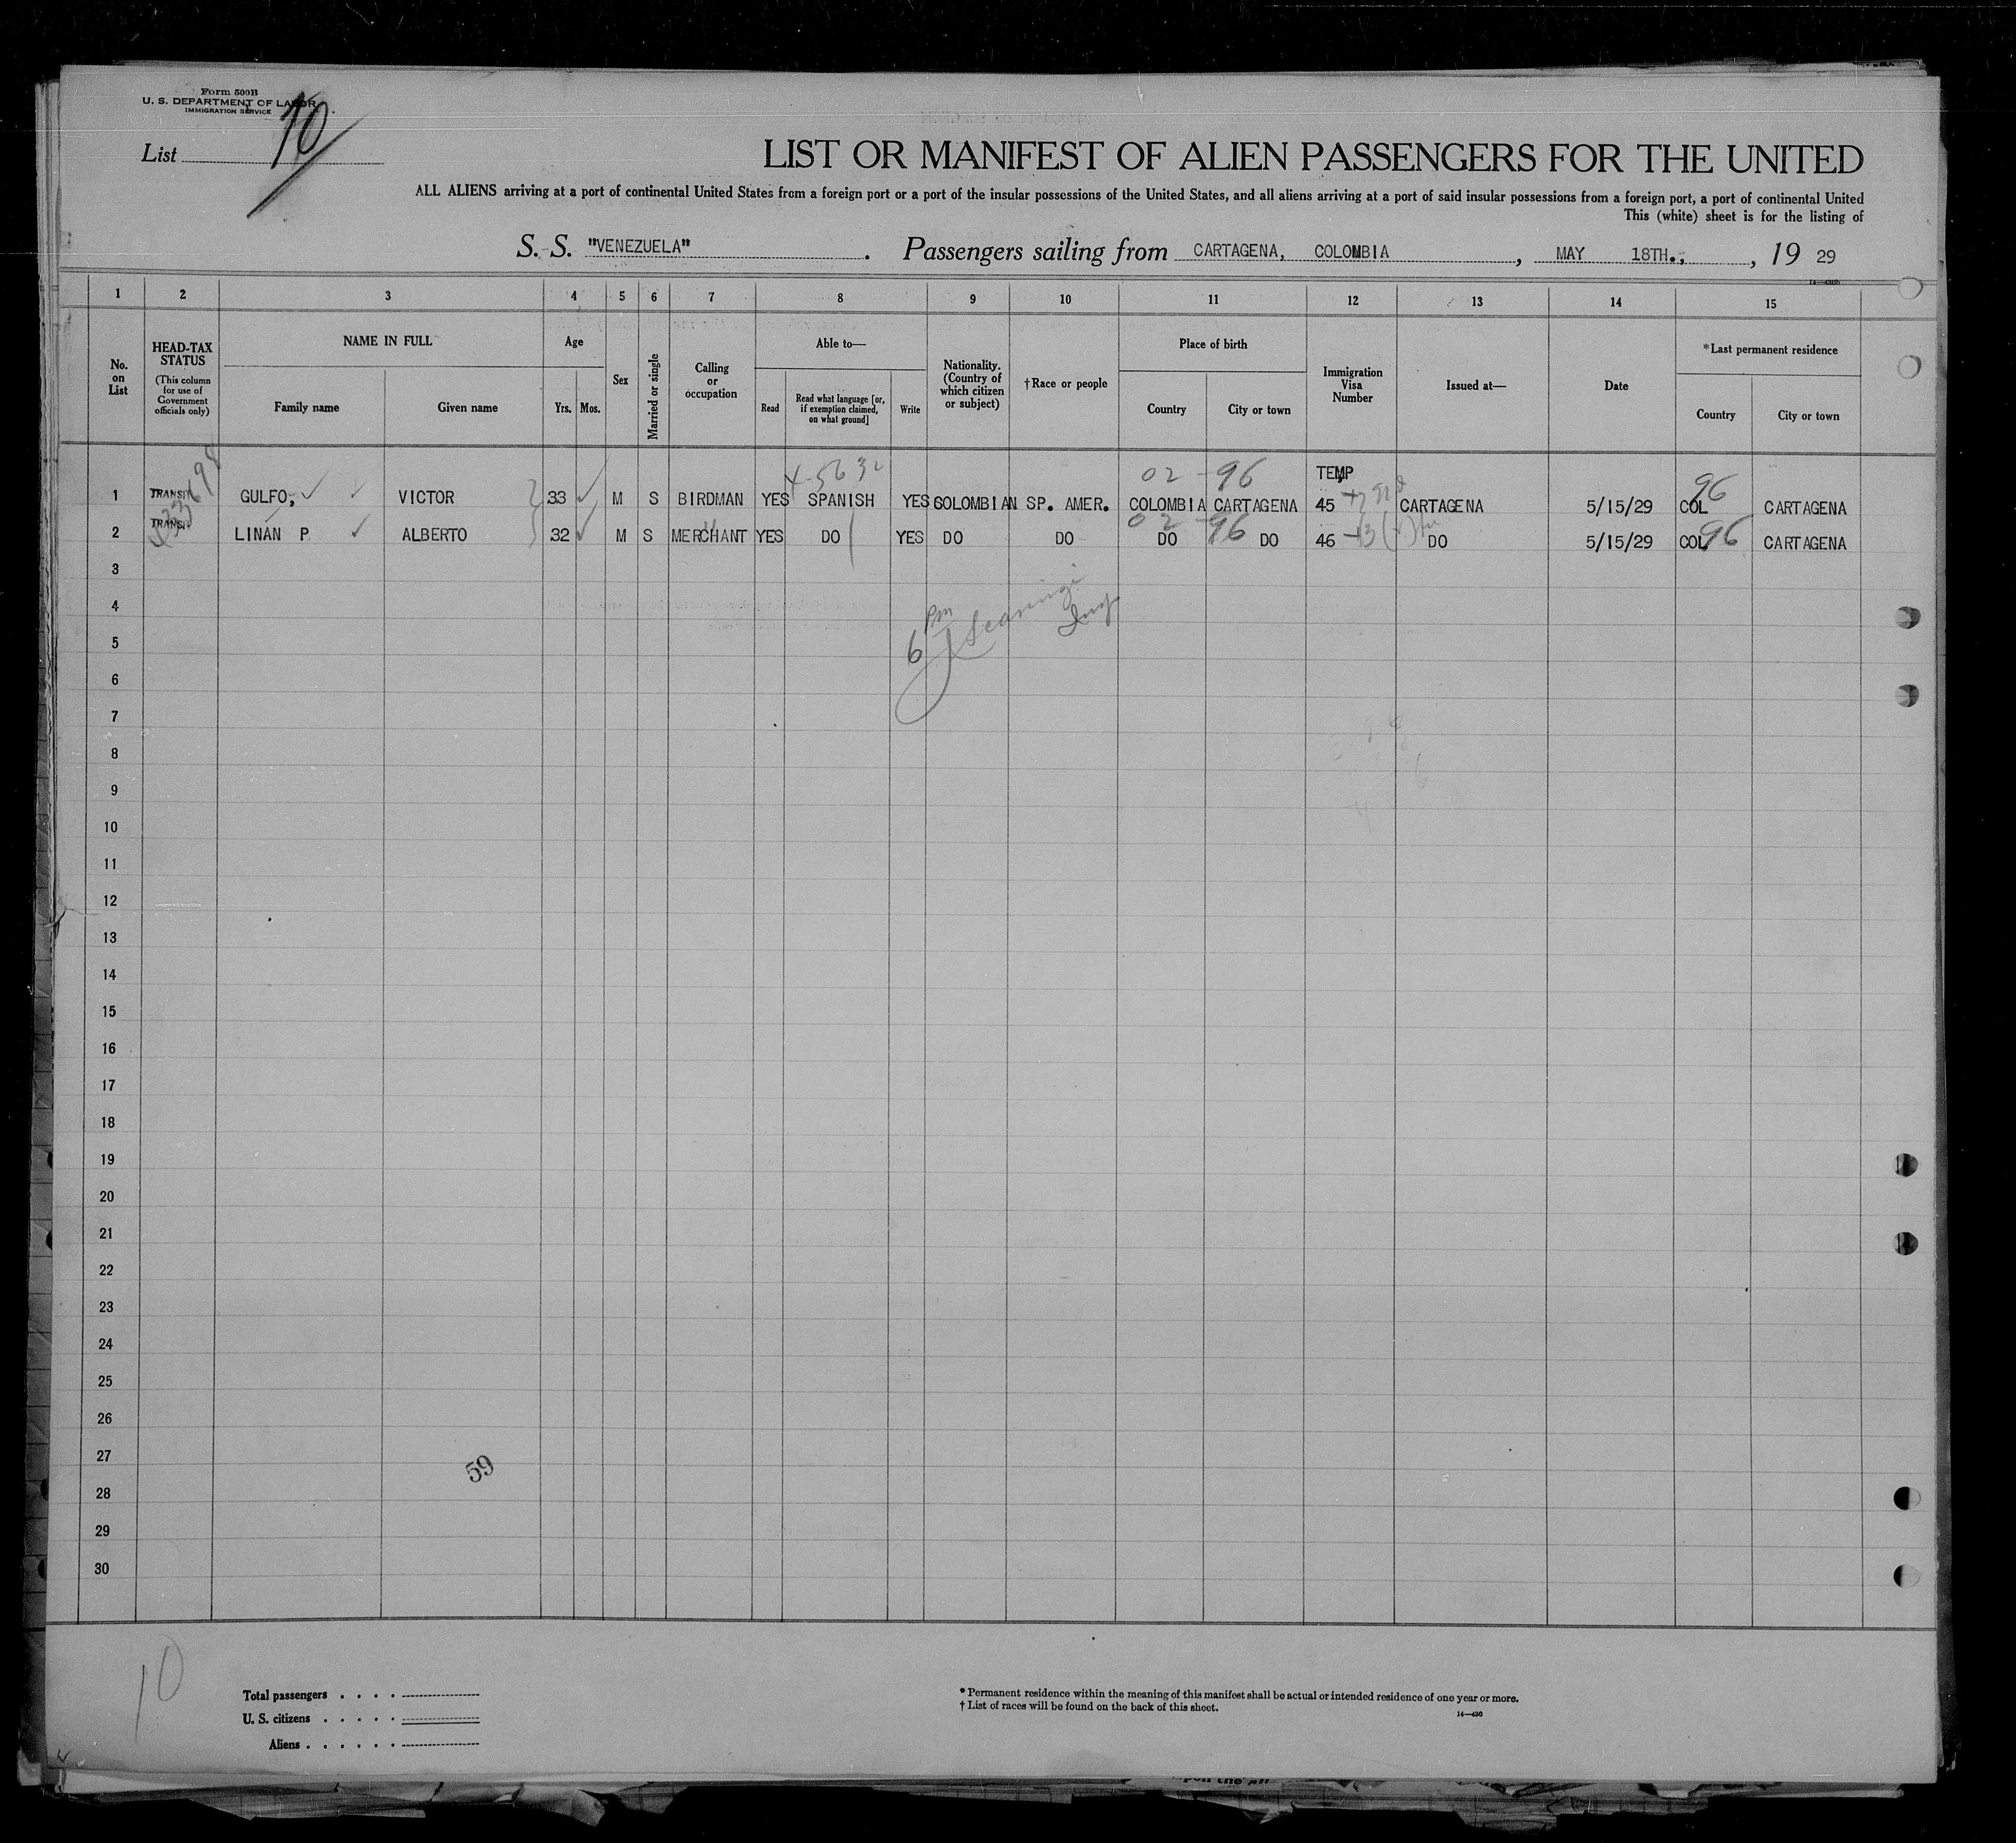 Form 500B
U. S. DEPARTMENT OF LABOR
IMMIGRATION SERVICE
List 10
LIST OR MANIFEST OF ALIEN PASSENGERS FOR THE UNITED
ALL ALIENS arriving at a port of continental United States from a foreign port or a port of the insular possessions of the United States, and all aliens arriving at a port of said insular possessions from a foreign port, a port of continental United
This (white) sheet is for the listing of
S. S. "VENEZUELA". Passengers sailing from CARTAGENA, COLOMBIA, MAY 18TH., , 19 29
14—430b
1 2 3 4 5 6 7 8 9 10 11 12 13 14 15
No. on List
HEAD-TAX STATUS
(This column for use of Government officials only)
NAME IN FULL
Family name Given name
Age
Yrs. Mos.
Sex
Married or single
Calling or occupation
Able to—
Read
Read what language [or, if exemption claimed, on what ground]
Write
Nationality. (Country of which citizen or subject)
†Race or people
Place of birth
Country City or town
Immigration Visa Number
Issued at—
Date
*Last permanent residence
Country City or town
4-5632 02 -96 TEMP 96
1 TRANSIT GULFO, VICTOR 33 M S BIRDMAN YES SPANISH YES COLOMBIAN SP. AMER. COLOMBIA CARTAGENA 45 CARTAGENA 5/15/29 COL CARTAGENA
02 -96 96
2 TRANSIT LINAN P ALBERTO 32 M S MERCHANT YES DO YES DO DO DO DO 46 DO 5/15/29 COL CARTAGENA
3
4
Pm
5
6
6
7
8
9
10
11
12
13
14
15
16
17
18
19
20
21
22
23
24
25
26
27
59
28
29
30
10
Total passengers
U. S. citizens
Aliens
* Permanent residence within the meaning of this manifest shall be actual or intended residence of one year or more.
† List of races will be found on the back of this sheet.
14—430